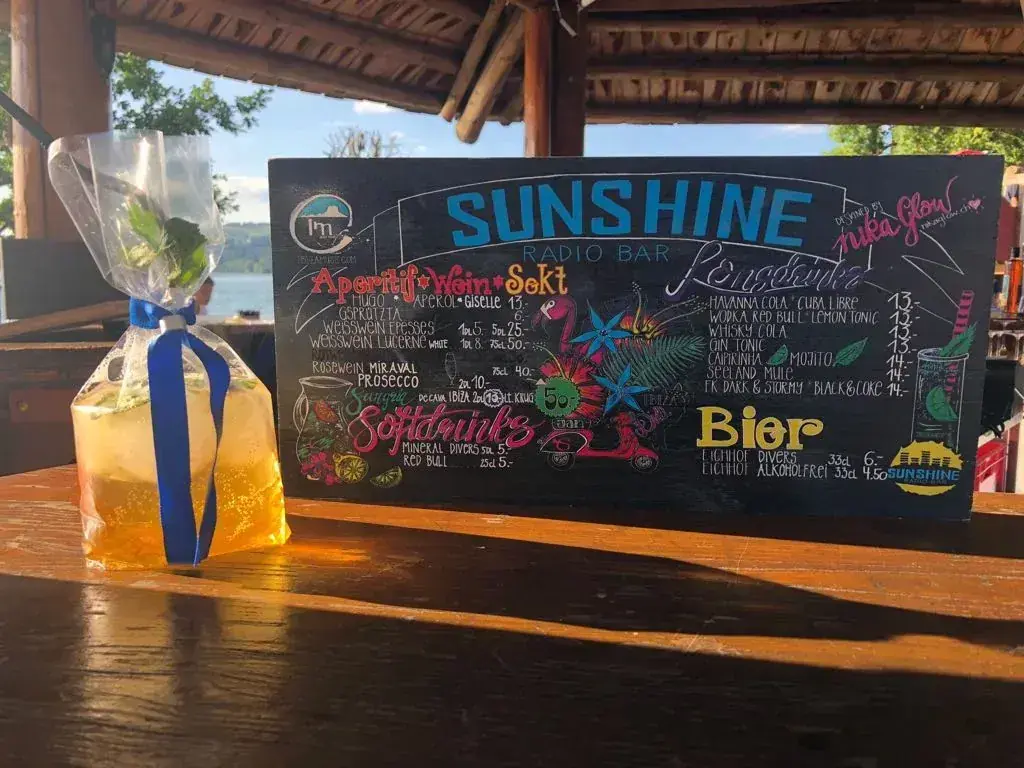 SUNSHINE
RADIO BAR
1m
IBIZAMUSIC.COM
DESIGNED BY
nika glow
Aperitif*Wein*Sekt
HUGO * APEROL * GISELLE 13.-
GSPRÜTZTA 6.-
WEISSWEIN EPESSES 1DL 5.- 5DL 25.-
WEISSWEIN LUCERNE WHITE 1DL 8.- 75CL 50.-
ROSEWEIN MIRAVAL 75CL 40.-
PROSECCO 2DL 10.-
Sangria DE CAVA IBIZA 2DL 13.- LT. KRUG
50.-
Softdrinks
MINERAL DIVERS 5DL 5.-
RED BULL 25CL 5.-
Longdrinks
HAVANNA COLA * CUBA LIBRE 13.-
WODKA RED BULL * LEMON TONIC 13.-
WHISKY COLA 13.-
GIN TONIC 13.-
CAIPIRINHA MOJITO 14.-
SEELAND MULE 14.-
FK DARK & STORMY * BLACK & COKE 14.-
Bier
EICHHOF DIVERS 33cl 6.-
EICHHOF ALKOHOLFREI 33cl 4.50
SUNSHINE
RADIO BAR